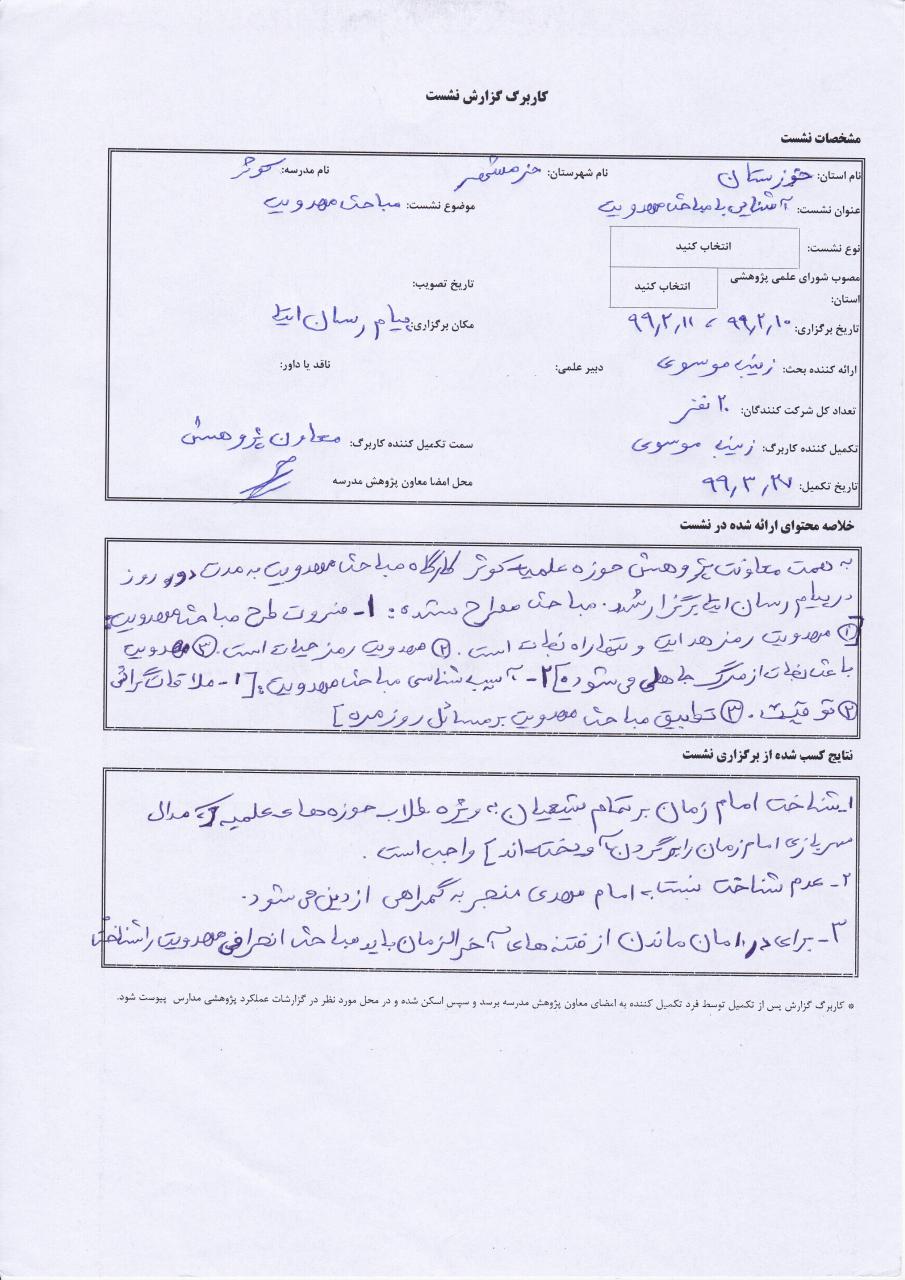 کاربرگ گزارش نشست
مشخصات نشست
نام استان: خوزستان نام شهرستان: خرمشهر نام مدرسه: کوثر
عنوان نشست: آشنایی با مباحث مهدویت موضوع نشست: مباحث مهدویت
نوع نشست: انتخاب کنید
مصوب شورای علمی پژوهشی استان: انتخاب کنید تاریخ تصویب:
تاریخ برگزاری: ۹۹,۲,۱۰ ، ۹۹,۲,۱۱ مکان برگزاری: پیام رسان ایتا
ارائه کننده بحث: زینب موسوی دبیر علمی: ناقد یا داور:
تعداد کل شرکت کنندگان: ۲۰ نفر
تکمیل کننده کاربرگ: زینب موسوی سمت تکمیل کننده کاربرگ: معاون پژوهش
تاریخ تکمیل: ۹۹,۳,۲۷ محل امضا معاون پژوهش مدرسه
خلاصه محتوای ارائه شده در نشست
به همت معاونت پژوهش حوزه علمیه کوثر کارگاه مباحث مهدویت به مدت دو روز
در پیام رسان ایتا برگزار شد. مباحث مطرح شده: ۱- ضرورت طرح مباحث مهدویت:
[① مهدویت رمز هدایت و تنها راه نجات است. ② مهدویت رمز حیات است. ③ مهدویت
باعث نجات از مرگ جاهلی می شود.] ۲- آسیب شناسی مباحث مهدویت: [۱- ملاقات گرائی
② توقیت. ③ تطبیق مباحث مهدویت بر مسائل روزمره]
نتایج کسب شده از برگزاری نشست
۱. شناخت امام زمان بر تمام شیعیان به ویژه طلاب حوزه های علمیه [که مدال
سربازی امام زمان را بر گردن آویخته اند] واجب است.
۲- عدم شناخت نسبت به امام مهدی منجر به گمراهی از دین می شود.
۳- برای در امان ماندن از فتنه های آخرالزمان باید مباحث انحرافی مهدویت را شناخت
* کاربرگ گزارش پس از تکمیل توسط فرد تکمیل کننده به امضای معاون پژوهش مدرسه برسد و سپس اسکن شده و در محل مورد نظر در گزارشات عملکرد پژوهشی مدارس پیوست شود.